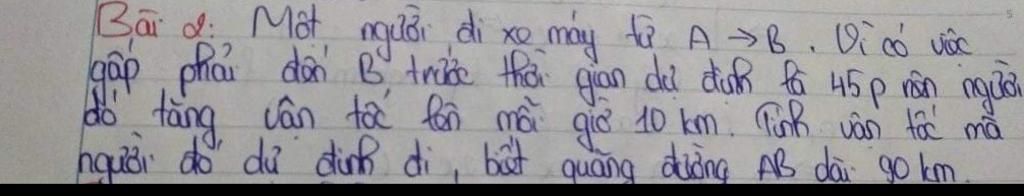 Bài 2: Một người đi xe máy từ A → B. Vì có việc
gấp phải đến B trước thời gian dự định là 45p nên người
đó tăng vận tốc lên mỗi giờ 10 km. Tính vận tốc mà
người đó dự định đi, biết quãng đường AB dài 90 km.